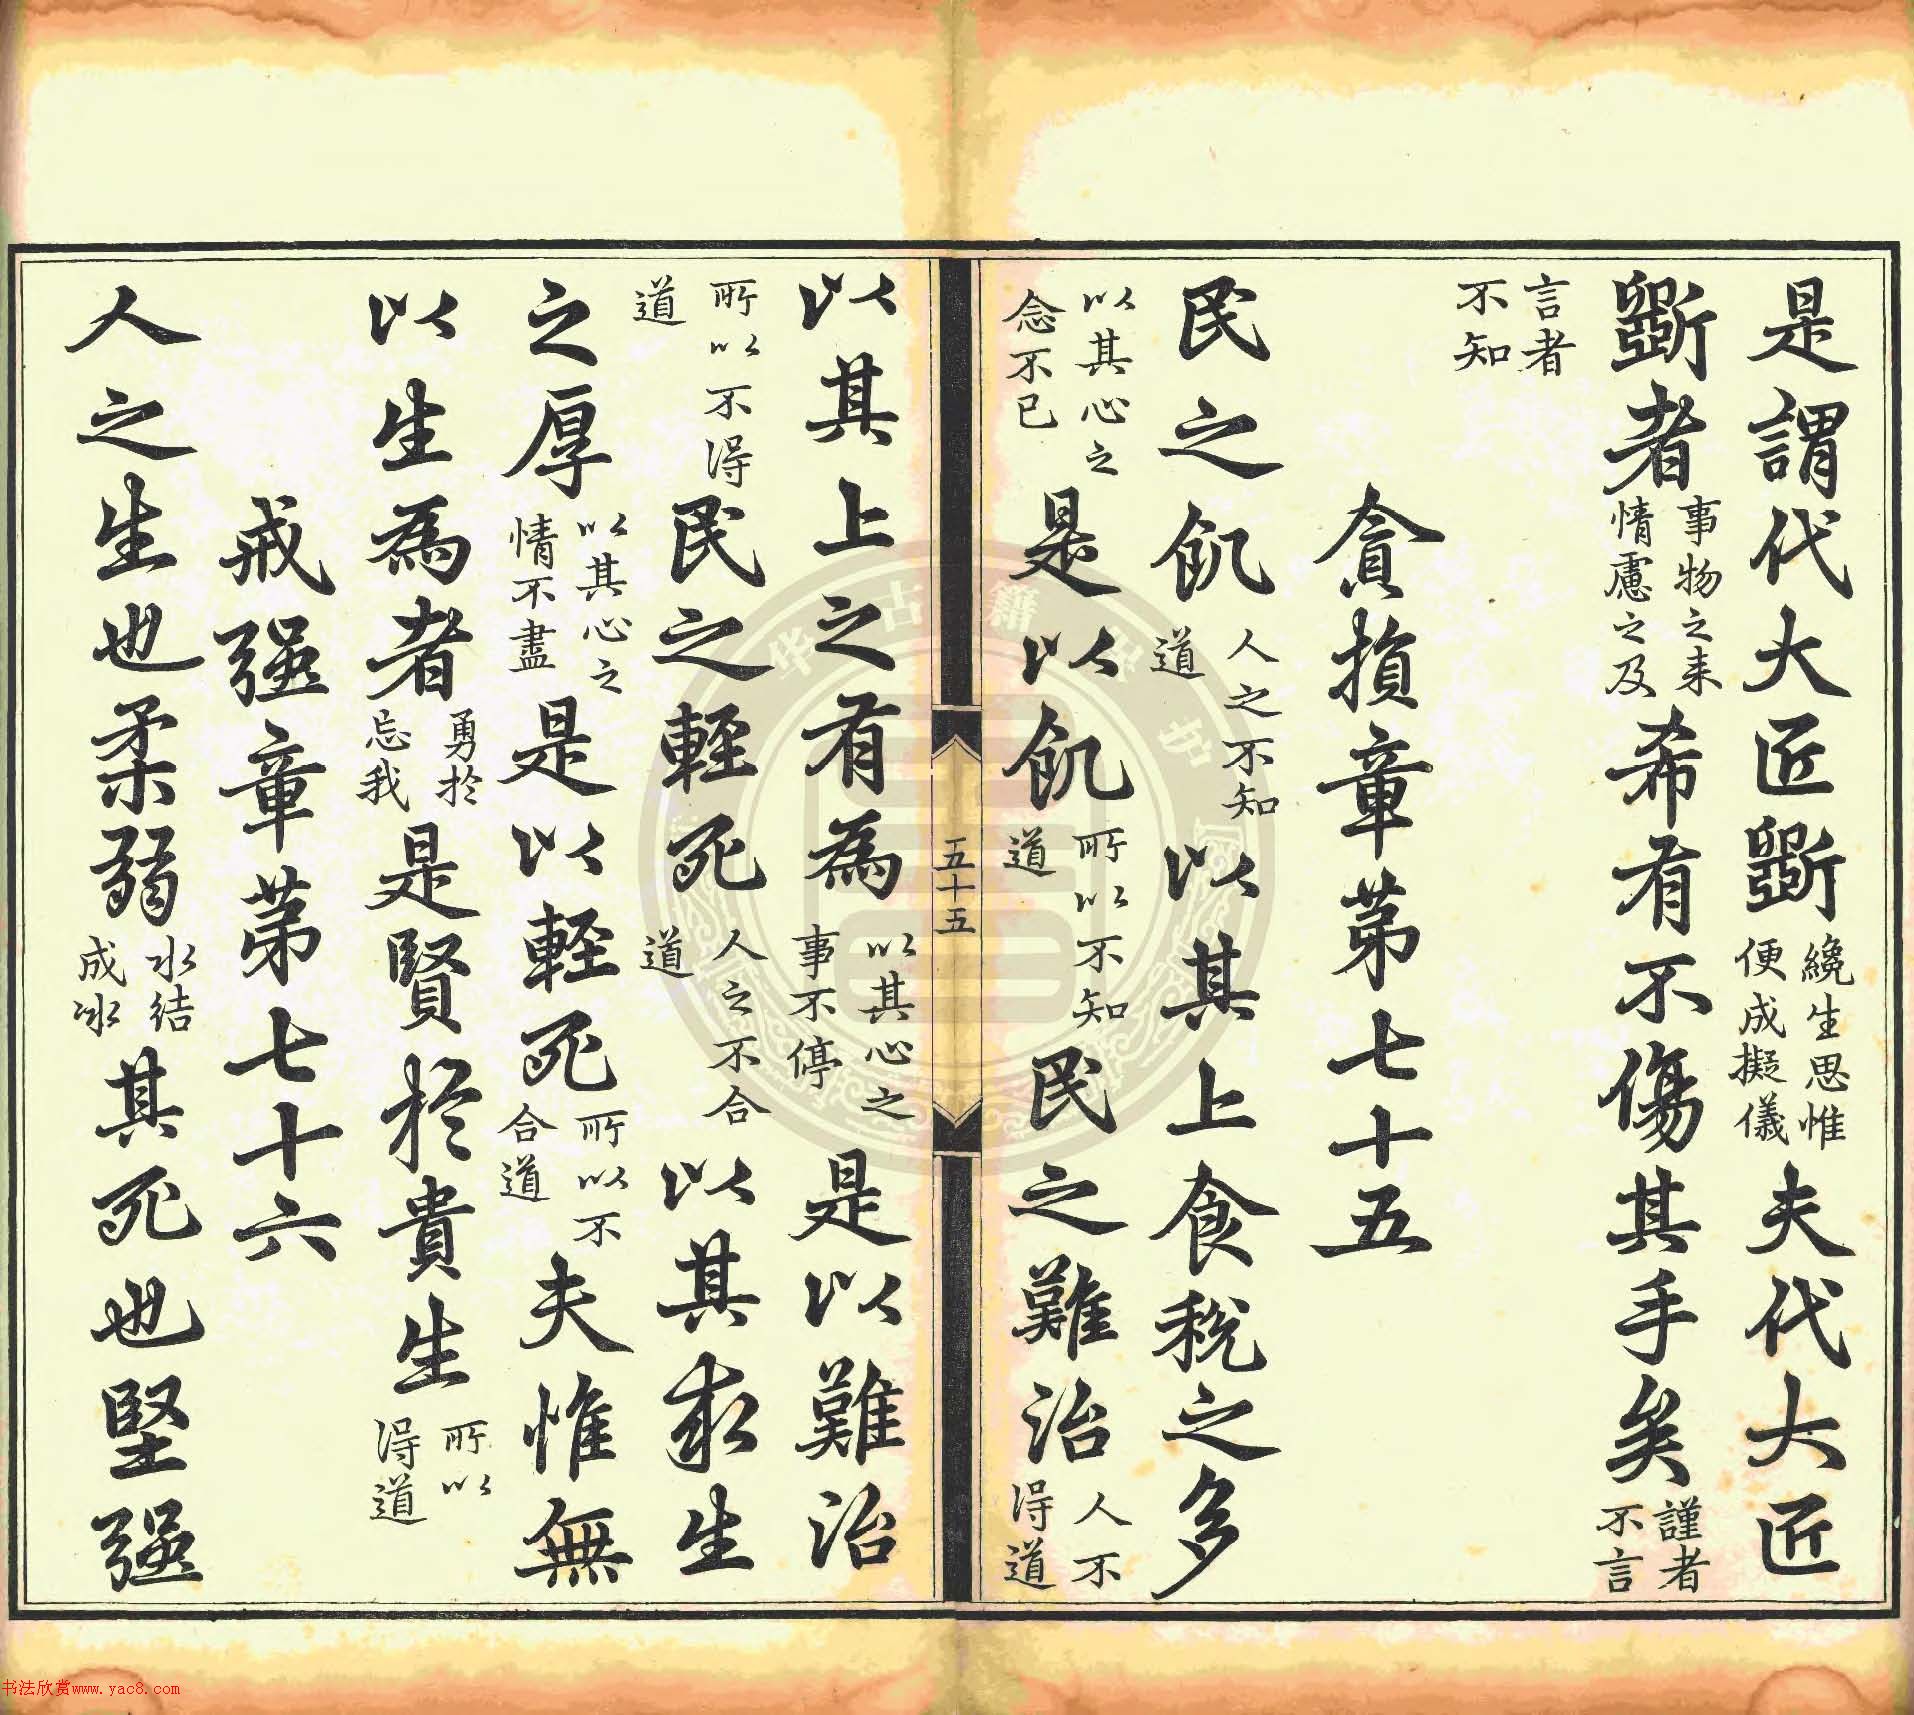 是謂代大匠斲纔生思惟便成擬儀夫代大匠
斲者事物之來情慮之及希有不傷其手矣謹者不言
言者不知
貪損章第七十五
民之飢人之不知道以其上食稅之多
以其心之念不已是以飢所以不知道民之難治人不得道
五十五
以其上之有為以其心之事不停是以難治
所以不得道民之輕死人之不合道以其求生
之厚以其心之情不盡是以輕死所以不合道夫惟無
以生為者勇於忘我是賢於貴生所以得道
戒强章第七十六
人之生也柔弱水結成冰其死也堅强
书法欣赏www.yac8.com